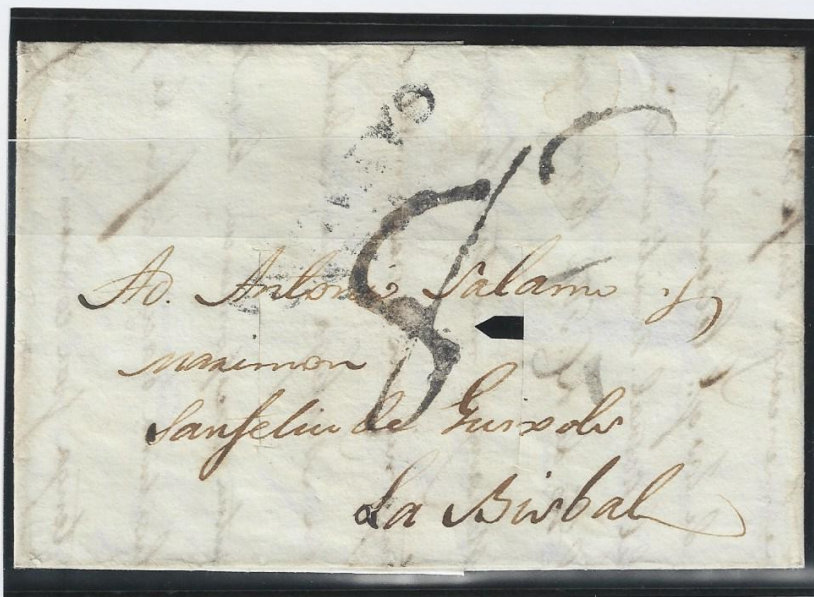 8
Ad. Antonio Salamo y
Maximon
Sanfeliu de Guixols
La Bisbal